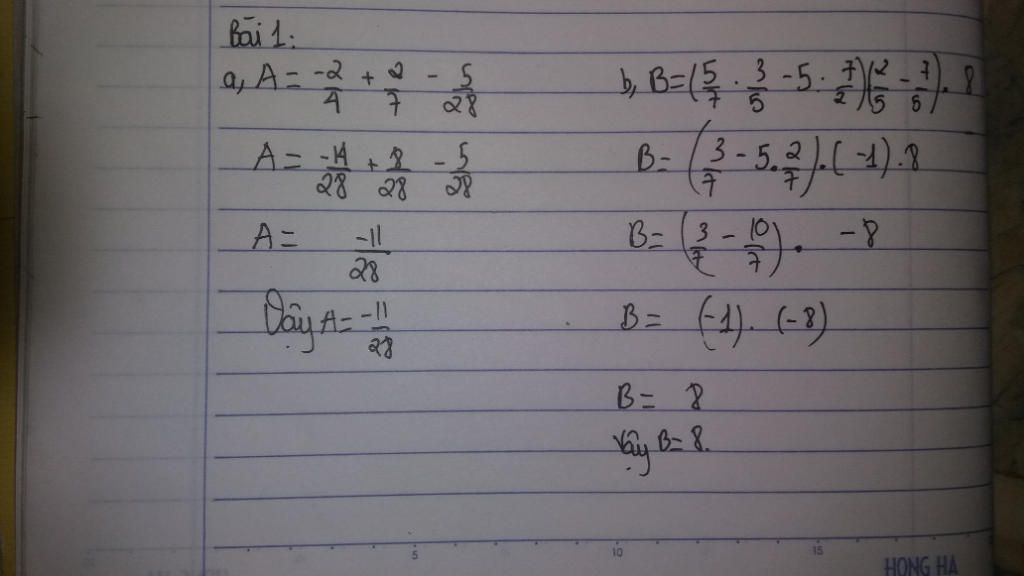 Bài 1:
a, A = -2/4 + 2/7 - 5/28
A = -14/28 + 8/28 - 5/28
A = -11/28
Vậy A = -11/28
b, B = (5/7 . 3/5 - 5 . 7/2)(2/5 - 7/5) . 8
B = (3/7 - 5 . 2/7) . (-1) . 8
B = (3/7 - 10/7) . -8
B = (-1) . (-8)
B = 8
Vậy B = 8.
5 10 15
HONG HA